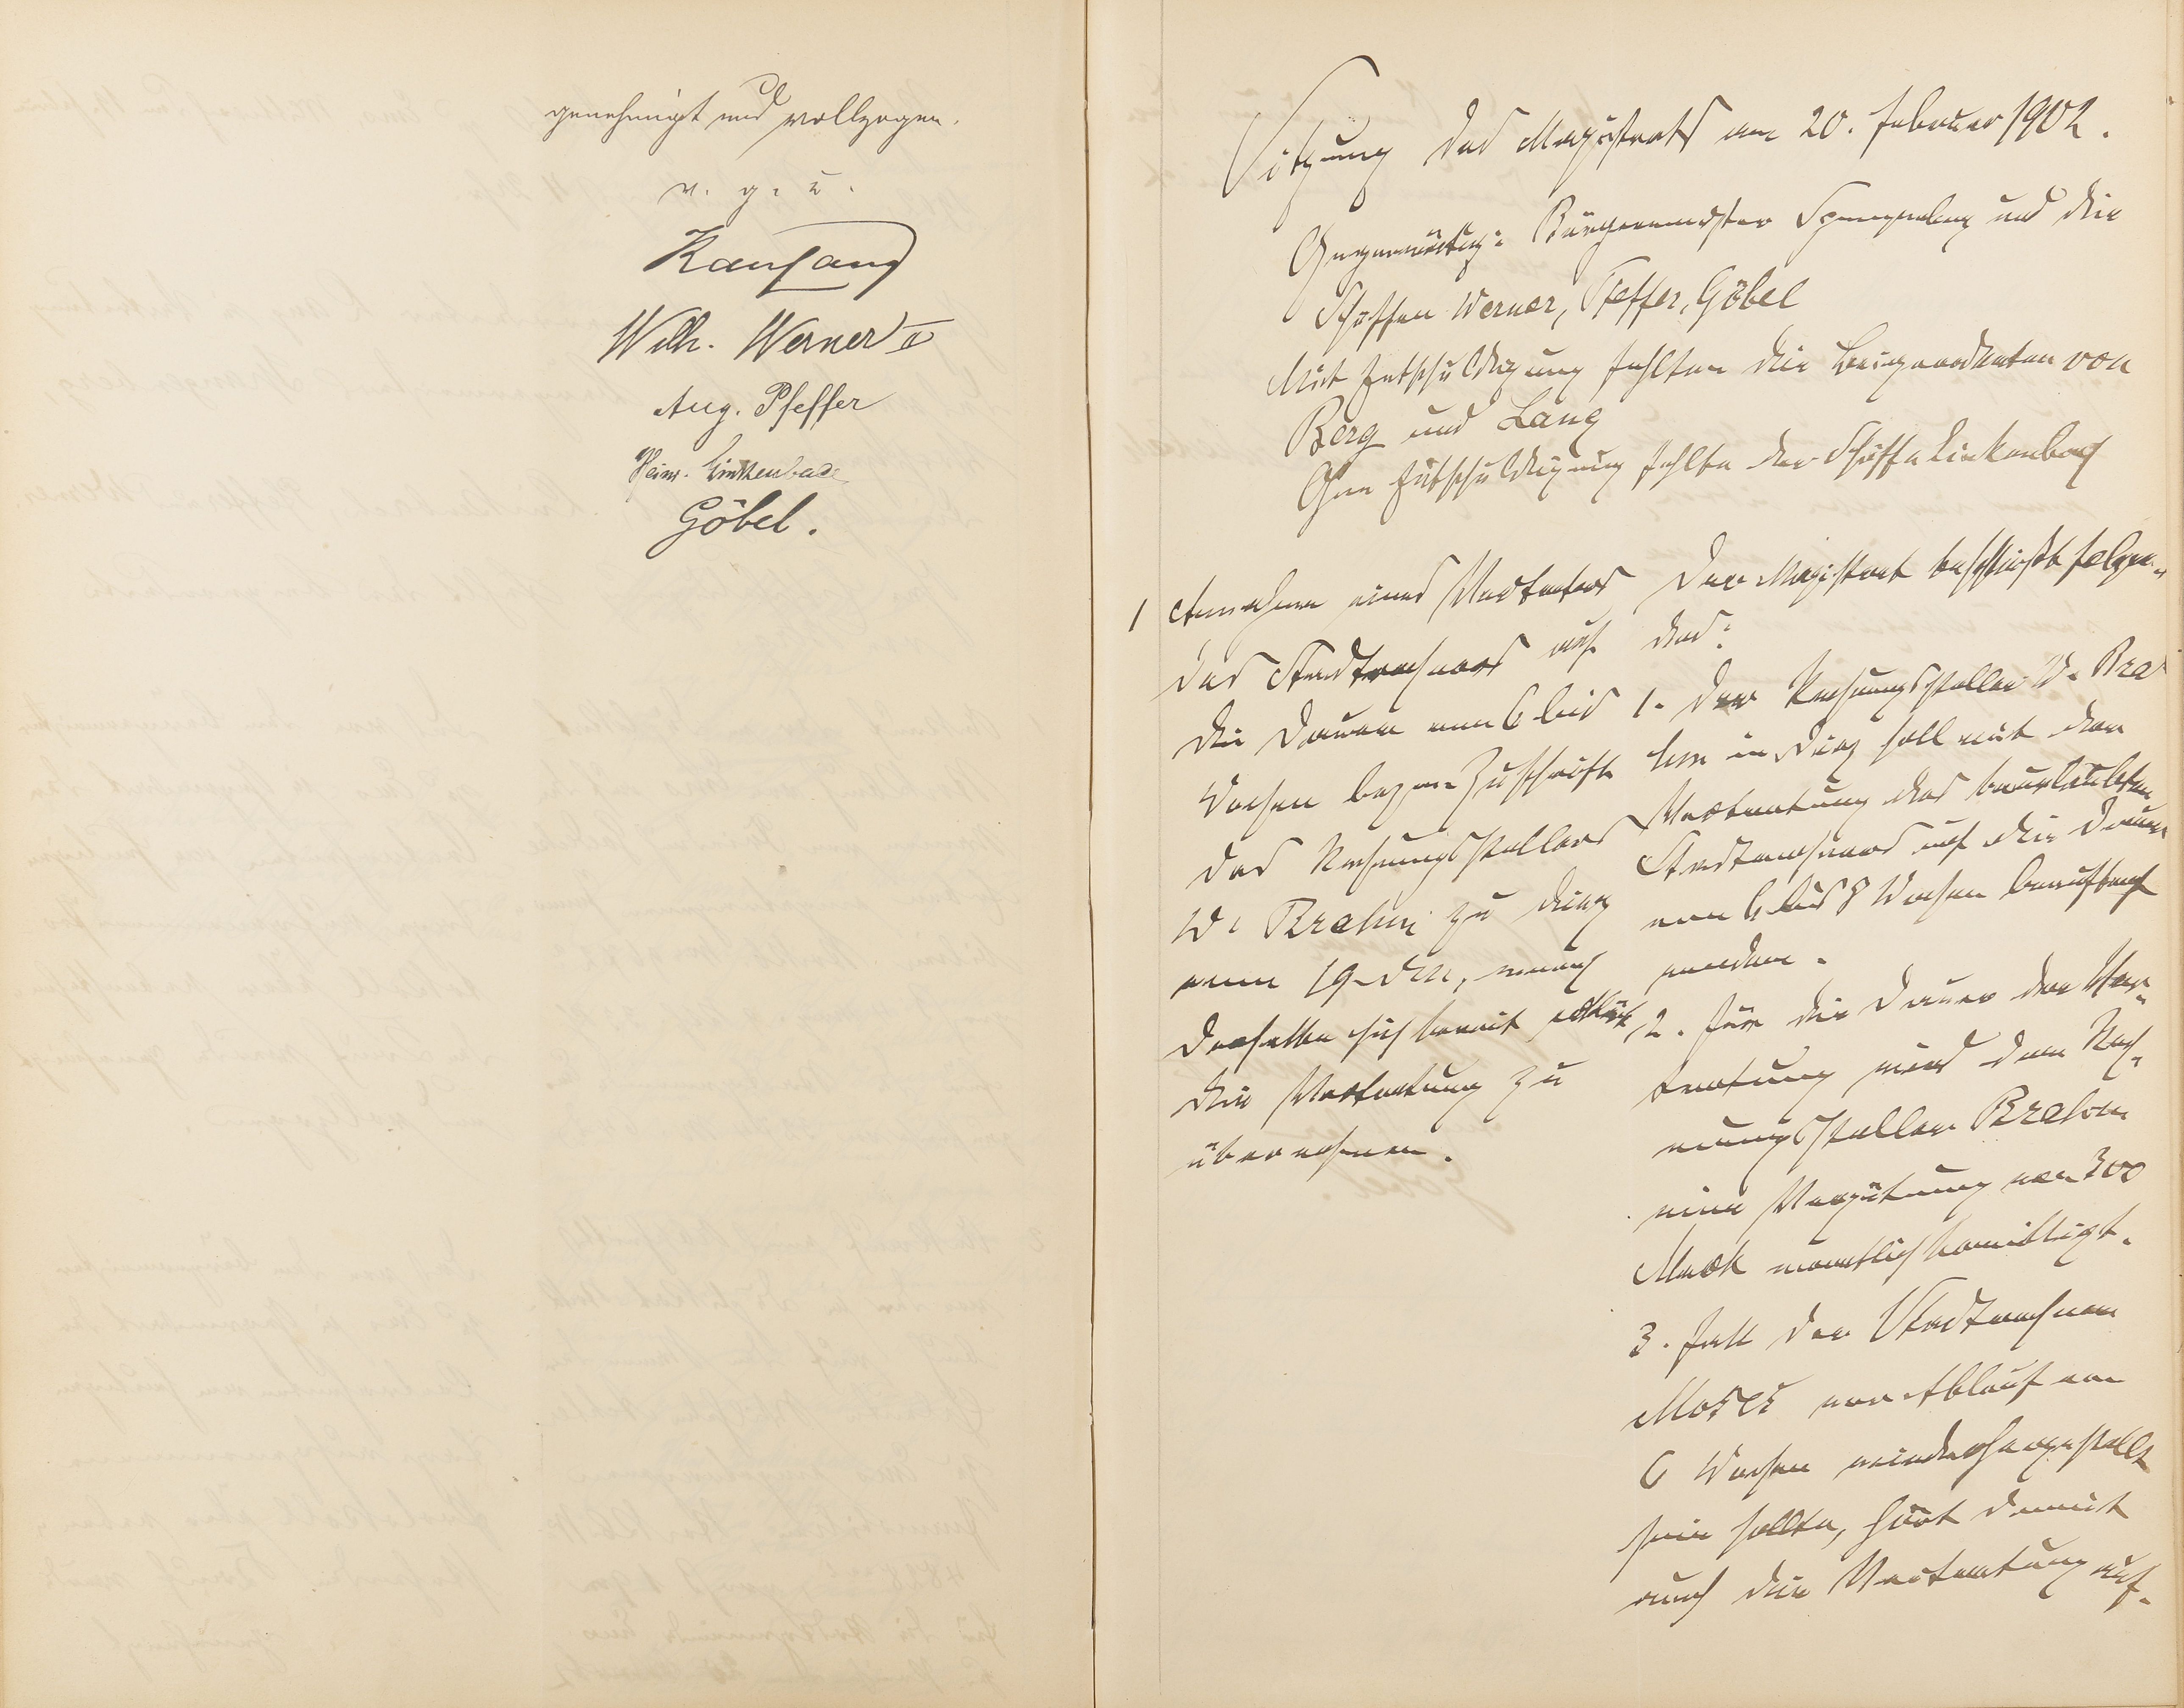 genehmigt und vollzogen.
v. g. u.
Wilh. Werner II
Aug. Pfeffer
Heinr. Linkenbach
Göbel.
Sitzung des Magistrats am 20. Februar 1902.
Gegenwärtig: Bürgermeister Spangenberg und die
Schöffen Werner, Pfeffer, Göbel
Mit Entschuldigung fehlten die Beigeordneten von
Berg und Lang
Ohne Entschuldigung fehlte der Schöffe Linkenbach
1 Annahme eines Vertreters
des Stadtrechners auf
die Dauer von 6 bis
Wochen bezw. Zuschrift
des Rechnungsstellers
W. Brahm zu Diez
vom 19. d. M., wonach
derselbe sich bereit erklärt
die Vertretung zu
übernehmen.
Der Magistrat beschließt folgen-
des:
1. Der Rechnungssteller W. Bra
hm in Diez soll mit der
Vertretung des beurlaubten
Stadtrechners auf die Dauer
von 6 bis 8 Wochen beauftragt
werden.
2. Für die Dauer der Ver-
tretung wird dem Rech-
nungssteller Brahm
eine Vergütung von 300
Mark monatlich bewilligt.
3. Falls der Stadtrechner
Moses vor Ablauf von
6 Wochen wiederhergestellt
sein sollte, hört damit
auch die Vertretung auf.